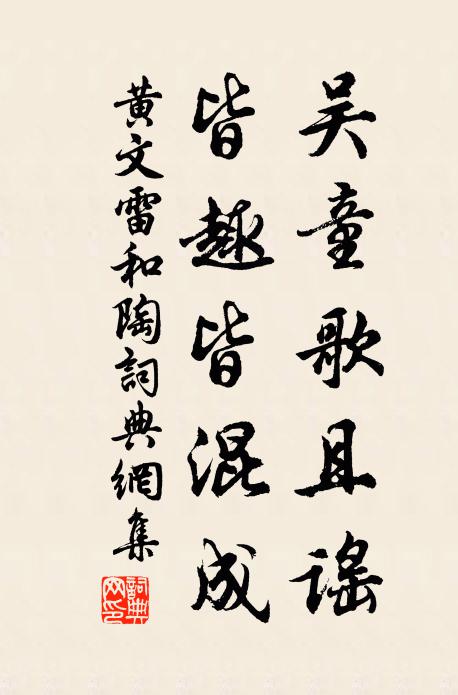 吴童歌且謠
皆趣皆混成
黃文雷和陶詞典網集
詞典網印